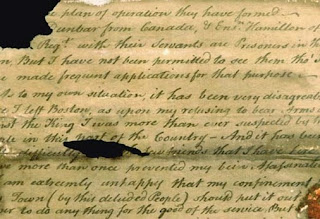 plan of operation they have formed
unbar from Canada, & Ensn. Hamilton of
Regt. with their Servants are Prisoners in th
n, But I have not been permitted to see them tho' I
made frequent applications for that purpose
As to my own situation, it has been very disagreeab
e I left Boston, as upon my refusing to bear arms a
st the King I was more than ever suspected by
le in this part of the Country – And it has been
difficulty friends that I have had
more than once prevented my being assassinate
am extremely unhappy that my confinement
Town (by this deluded People) should put it out
er to do any thing for the good of the service; But